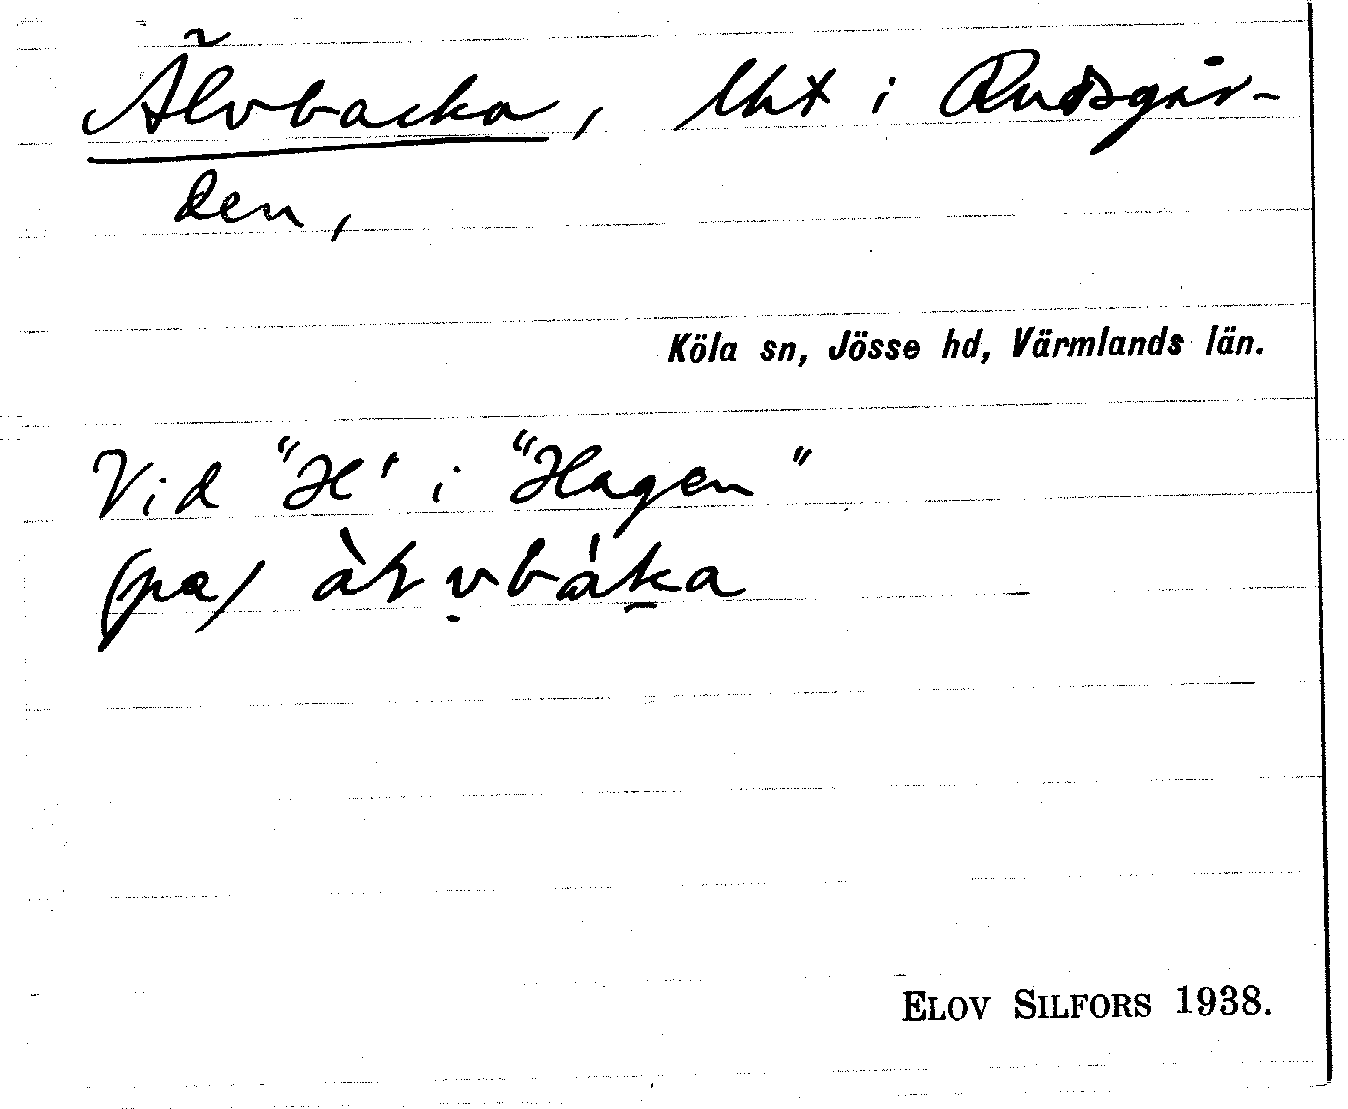 Älvbacka, lht i Rudsgår-
den,
Köla sn, Jösse hd, Värmlands län.
Vid "H" i "Hagen"
(pa)
ELOV SILFORS 1938.